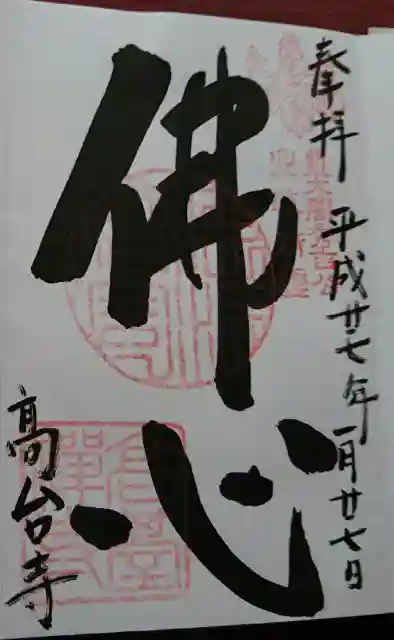 奉拝
平成廿七年一月廿七日
佛心
高台寺